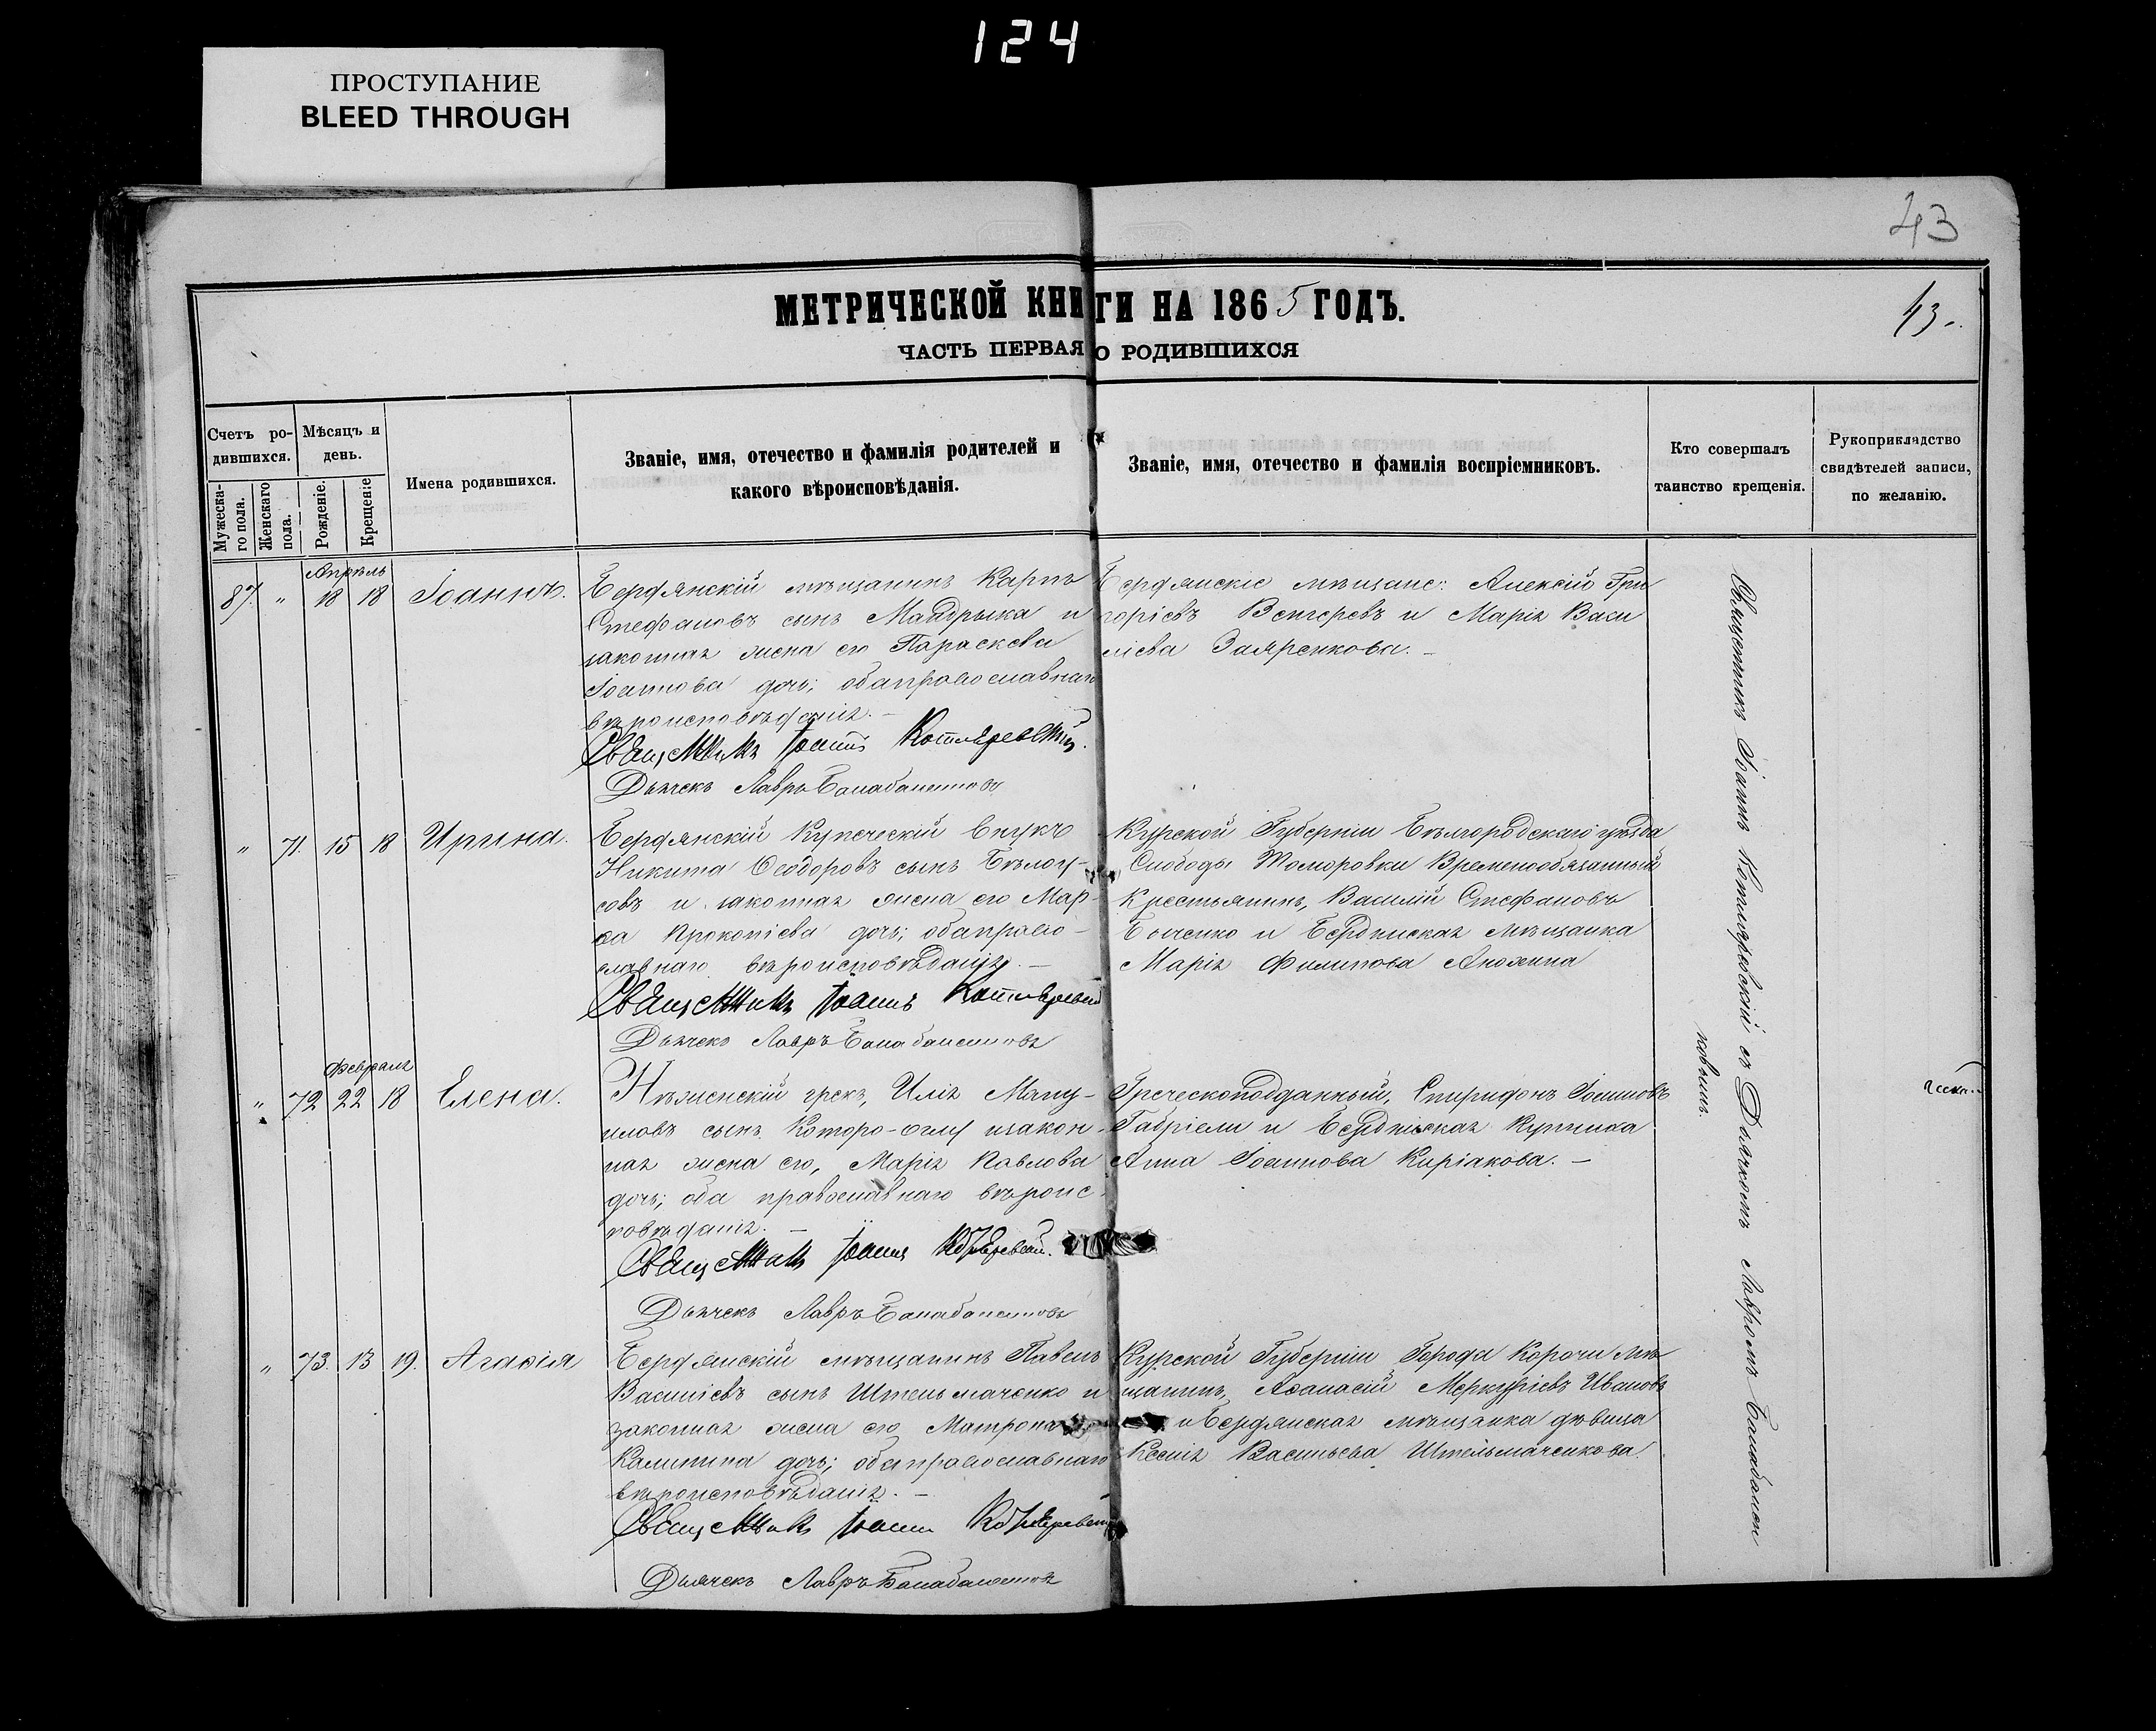 124
ПРОСТУПАНИЕ
BLEED THROUGH
43
МЕТРИЧЕСКОЙ КНИГИ НА 1865 ГОДЪ.
43.
ЧАСТЬ ПЕРВАЯ О РОДИВШИХСЯ
Счетъ ро-
дившихся.
Мужеска-
го пола.
Женскаго
пола.
Мѣсяцъ и
день.
Рожденіе.
Крещеніе
Имена родившихся.
Званіе, имя, отечество и фамилія родителей и
какого вѣроисповѣданія.
Званіе, имя, отечество и фамилія воспріемниковъ.
Кто совершалъ
таинство крещенія.
Рукоприкладство
свидѣтелей записи,
по желанію.
Апрѣль
87. " 18 18 Іоаннъ.
Бердянскій мѣщанинъ Карпъ
Стефановъ сынъ Мандрыка и
законная жена его Параскева
Іоаннова дочь; оба православнаго
вѣроисповѣданія. —
Священникъ Іоаннъ Котляревскій.
Дьячекъ Лавръ
Бердянскіе мѣщане: Алексій Гри
горіевъ Венгеревъ и Марія Васи
ліева Заяренкова. —
" 71. 15 18 Ирина.
Бердянскій Купеческій внукъ
Никита Ѳеодоровъ сынъ Бѣлоу-
совъ и законная жена его Мар-
ѳа Прокопіева дочь; оба право-
славнаго вѣроисповѣданія. —
Священникъ Іоаннъ Котляревскій
Дьячекъ Лавръ
Курской Губерніи Бѣлгородскаго уѣзда
Слободы Томаровки Временообязанный
Крестьянинъ, Василій Стефановъ
и Бердянская мѣщанка
Марія Филипова Анохина
Февраля
" 72 22 18 Елена.
Нѣженскій грекъ, Илія Ману-
иловъ сынъ Которо-оглу и закон-
ная жена его, Марія Павлова
дочь; оба православнаго вѣроис-
повѣданія. —
Священникъ Іоаннъ Котляревскій.
Дьячекъ Лавръ
Греческоподданный, Спиридонъ Іоанновъ
Габріели и Бердянская Купчиха
Анна Іоаннова Киріакова. —
" 73. 13 19. Агаѳія
Бердянскій мѣщанинъ Павелъ
Василіевъ сынъ Штельмаченко и
законная жена его Матрона
Калинина дочь; оба православнаго
вѣроисповѣданія. —
Священникъ Іоаннъ Котляревскій
Дьячекъ Лавръ
Курской Губерніи Города Корочи мѣ-
щанинъ, Аѳанасій Меркуріевъ Ивановъ
и Бердянская мѣщанка дѣвица
Ксенія Васильева Штельмаченкова.
Священникъ Іоаннъ Котляревскій съ Дьячкомъ Лавромъ